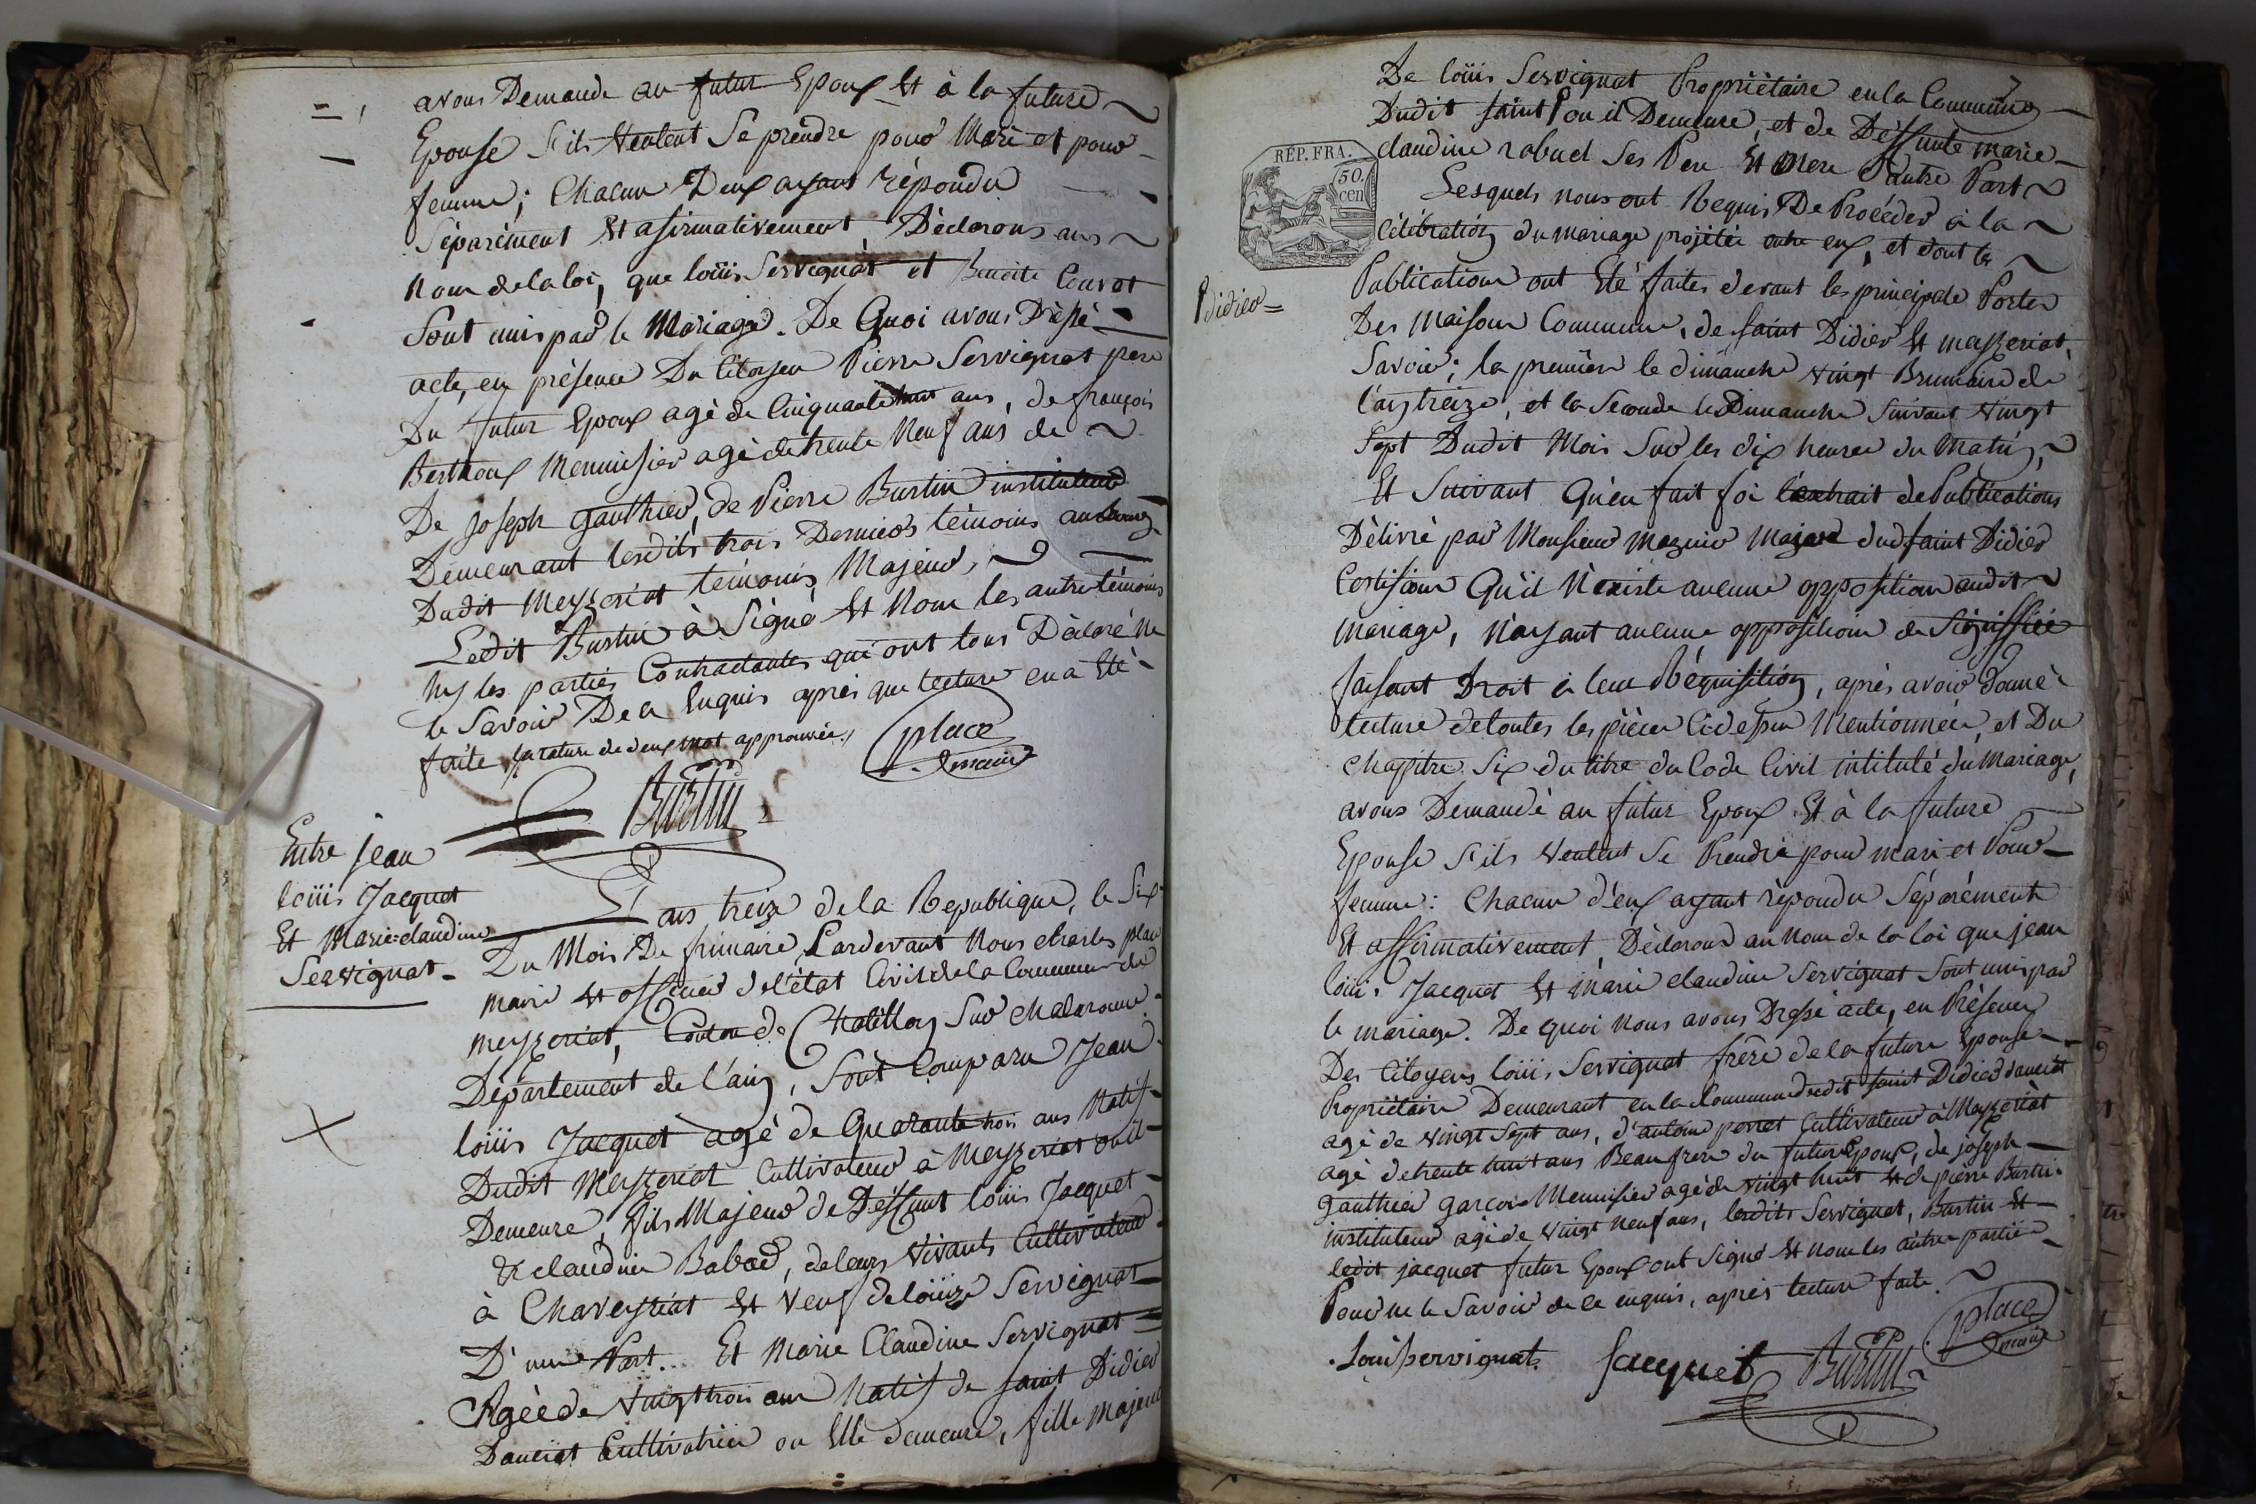 avons Demandé au futur Epoux Et à la future
Epouse S'ils Veulent Se prendre pour Mari et pour
femme; Chacun D'eux ayant répondu
Séparément Et afirmativement Déclarons au
Nom de la loi, que loüis Servignat et Benoite Couvot
Sont unis par le Mariage. De Quoi avons Dréssé
acte, en présence Du Citoyen Pierre Servignat pere
Du futur Epoux agé de Cinquante huit ans, de françois
Berthoux Menuisier agé de trente Neuf ans de
De joseph gauthier, de Pierre Burtin instituteur
Demeurant lesdits trois Derniers témoins au bourg
Dudit Meyzeriat témoins Majeur,
Ledit Burtin à Signé Et Non les autre témoins
Ny les parties Contractantes qui ont tous Déclaré Ne
le Savoir De ce Enquis après que lecture en a Eté
faite, la rature de deux mot approuvée,
place
maire
Burtin
Entre jean
loüis Jacquet
Et Marie=claudine
Servignat
L'ans treize de la Republique, le Six
Du Mois De frimaire, Pardevant Nous charles place
Maire Et officier de l'état Civil de la Commune de
Meyzeriat, Canton de Chatillon Sur chalaronne
Département de l'ain, Sont Comparu Jean
loüis Jacquet agé de Quarante trois ans Natif
Dudit Meyzeriat Cultivateur à Meyzeriat ou il
Demeure, fils Majeur de Déffunt loüis Jacquet
& claudine Babad, de leurs Vivants Cultivateur
à Chaveyriat Et Veuf de loüize Servignat
D'une Part... Et Marie Claudine Servignat
Agée de Vingt trois ans Natif de Saint Didier
Daussiat Cultivatrice ou Elle demeure, fille Majeure
De loüis Servignat Propriètaire en la Commune
Dudit saint ou il Demeure, et de Deffunte marie
RÉP. FRA.
50.
cen
claudine rabuel Ses Pere Et Mere D'autre Part
Lesquels nous ont Requis De Procéder à la
Célébration du mariage projétée entre eux, et dont les
Didier=
Publication ont Eté faites devant les principale Portes
Des Maison Commune, de saint Didier Et meyzeriat,
Savoir; la première le dimanche Vingt Brumaire de
l'an treize, et la Seconde le Dimanche Suivant Vingt
Sept Dudit Mois Sur les dix heures du Matin,
Et Suivant Qu'en fait foi l'extrait de Publications
Délivré par Monsieur Maire dud saint Didier
Certifions Qu'il N'existe aucune opposition audit
Mariage, N'ayant aucune opposition de Signiffiée
faisant Droit à leur Réquisition, après avoir donné
lecture de toutes les pièces Ci dessus Mentionnée, et Du
chappitre Six du titre du Code Civil intitulé du Mariage,
avons Demandé au futur Epoux Et à la future
Epouse S'ils Veulent Se Prendre pour mari et Pour
femme: Chacun d'eux ayant répondu Séparément
Et affirmativement, Déclarons au Nom de la loi que jean
loüis Jacquet Et marie claudine Servignat Sont unis par
le mariage. De quoi Nous avons Dressé acte, en Présence
Des Citoyens loüis Servignat frère de la future Epouse
Propriétaire Demeurant en la Commune dudit saint Didier daussiat
agé de Vingt Sept ans, d'antoine perret Cultivateur à Meyzeriat
agé de trente huit ans Beaufrere du futur Epoux, de joseph
gauthier garcon Menuisier agé de Vingt huit Et de pierre Burtin
instituteur agé de Vingt Neuf ans, lesdits Servignat, Burtin Et
ledit jacquet futur Epoux ont Signé Et Non les autres partie
Pour ne le Savoir de ce enquis, après lecture faite.
Loüis servignat
jacquet
Burtin
place
maire